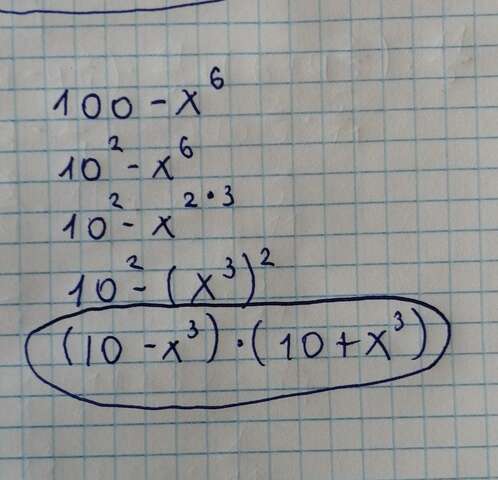 100 - x⁶
10² - x⁶
10² - x²•³
10² - (x³)²
(10 - x³)•(10 + x³)